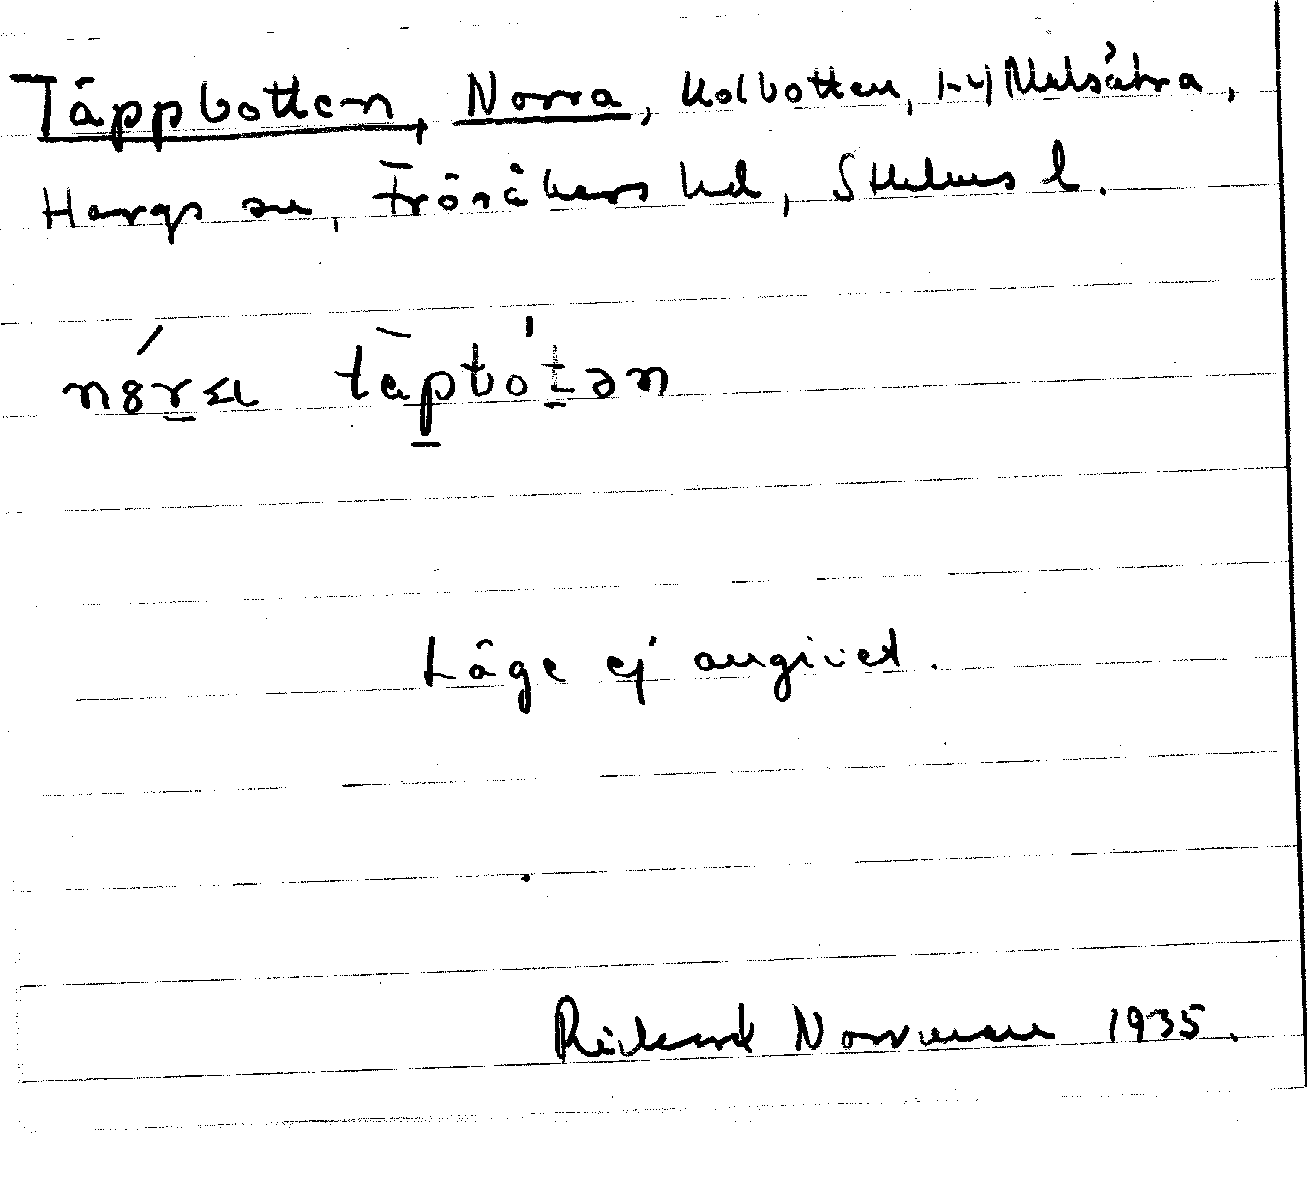 Täppbotten, Norra, Kolbotten, 1-4 Melsätra,
Hargs sn, Frösåkers hd, Sthlms l.
nɤ́ra tàpbo̍tən
Läge ej angivet.
Rickard Norrman 1935.